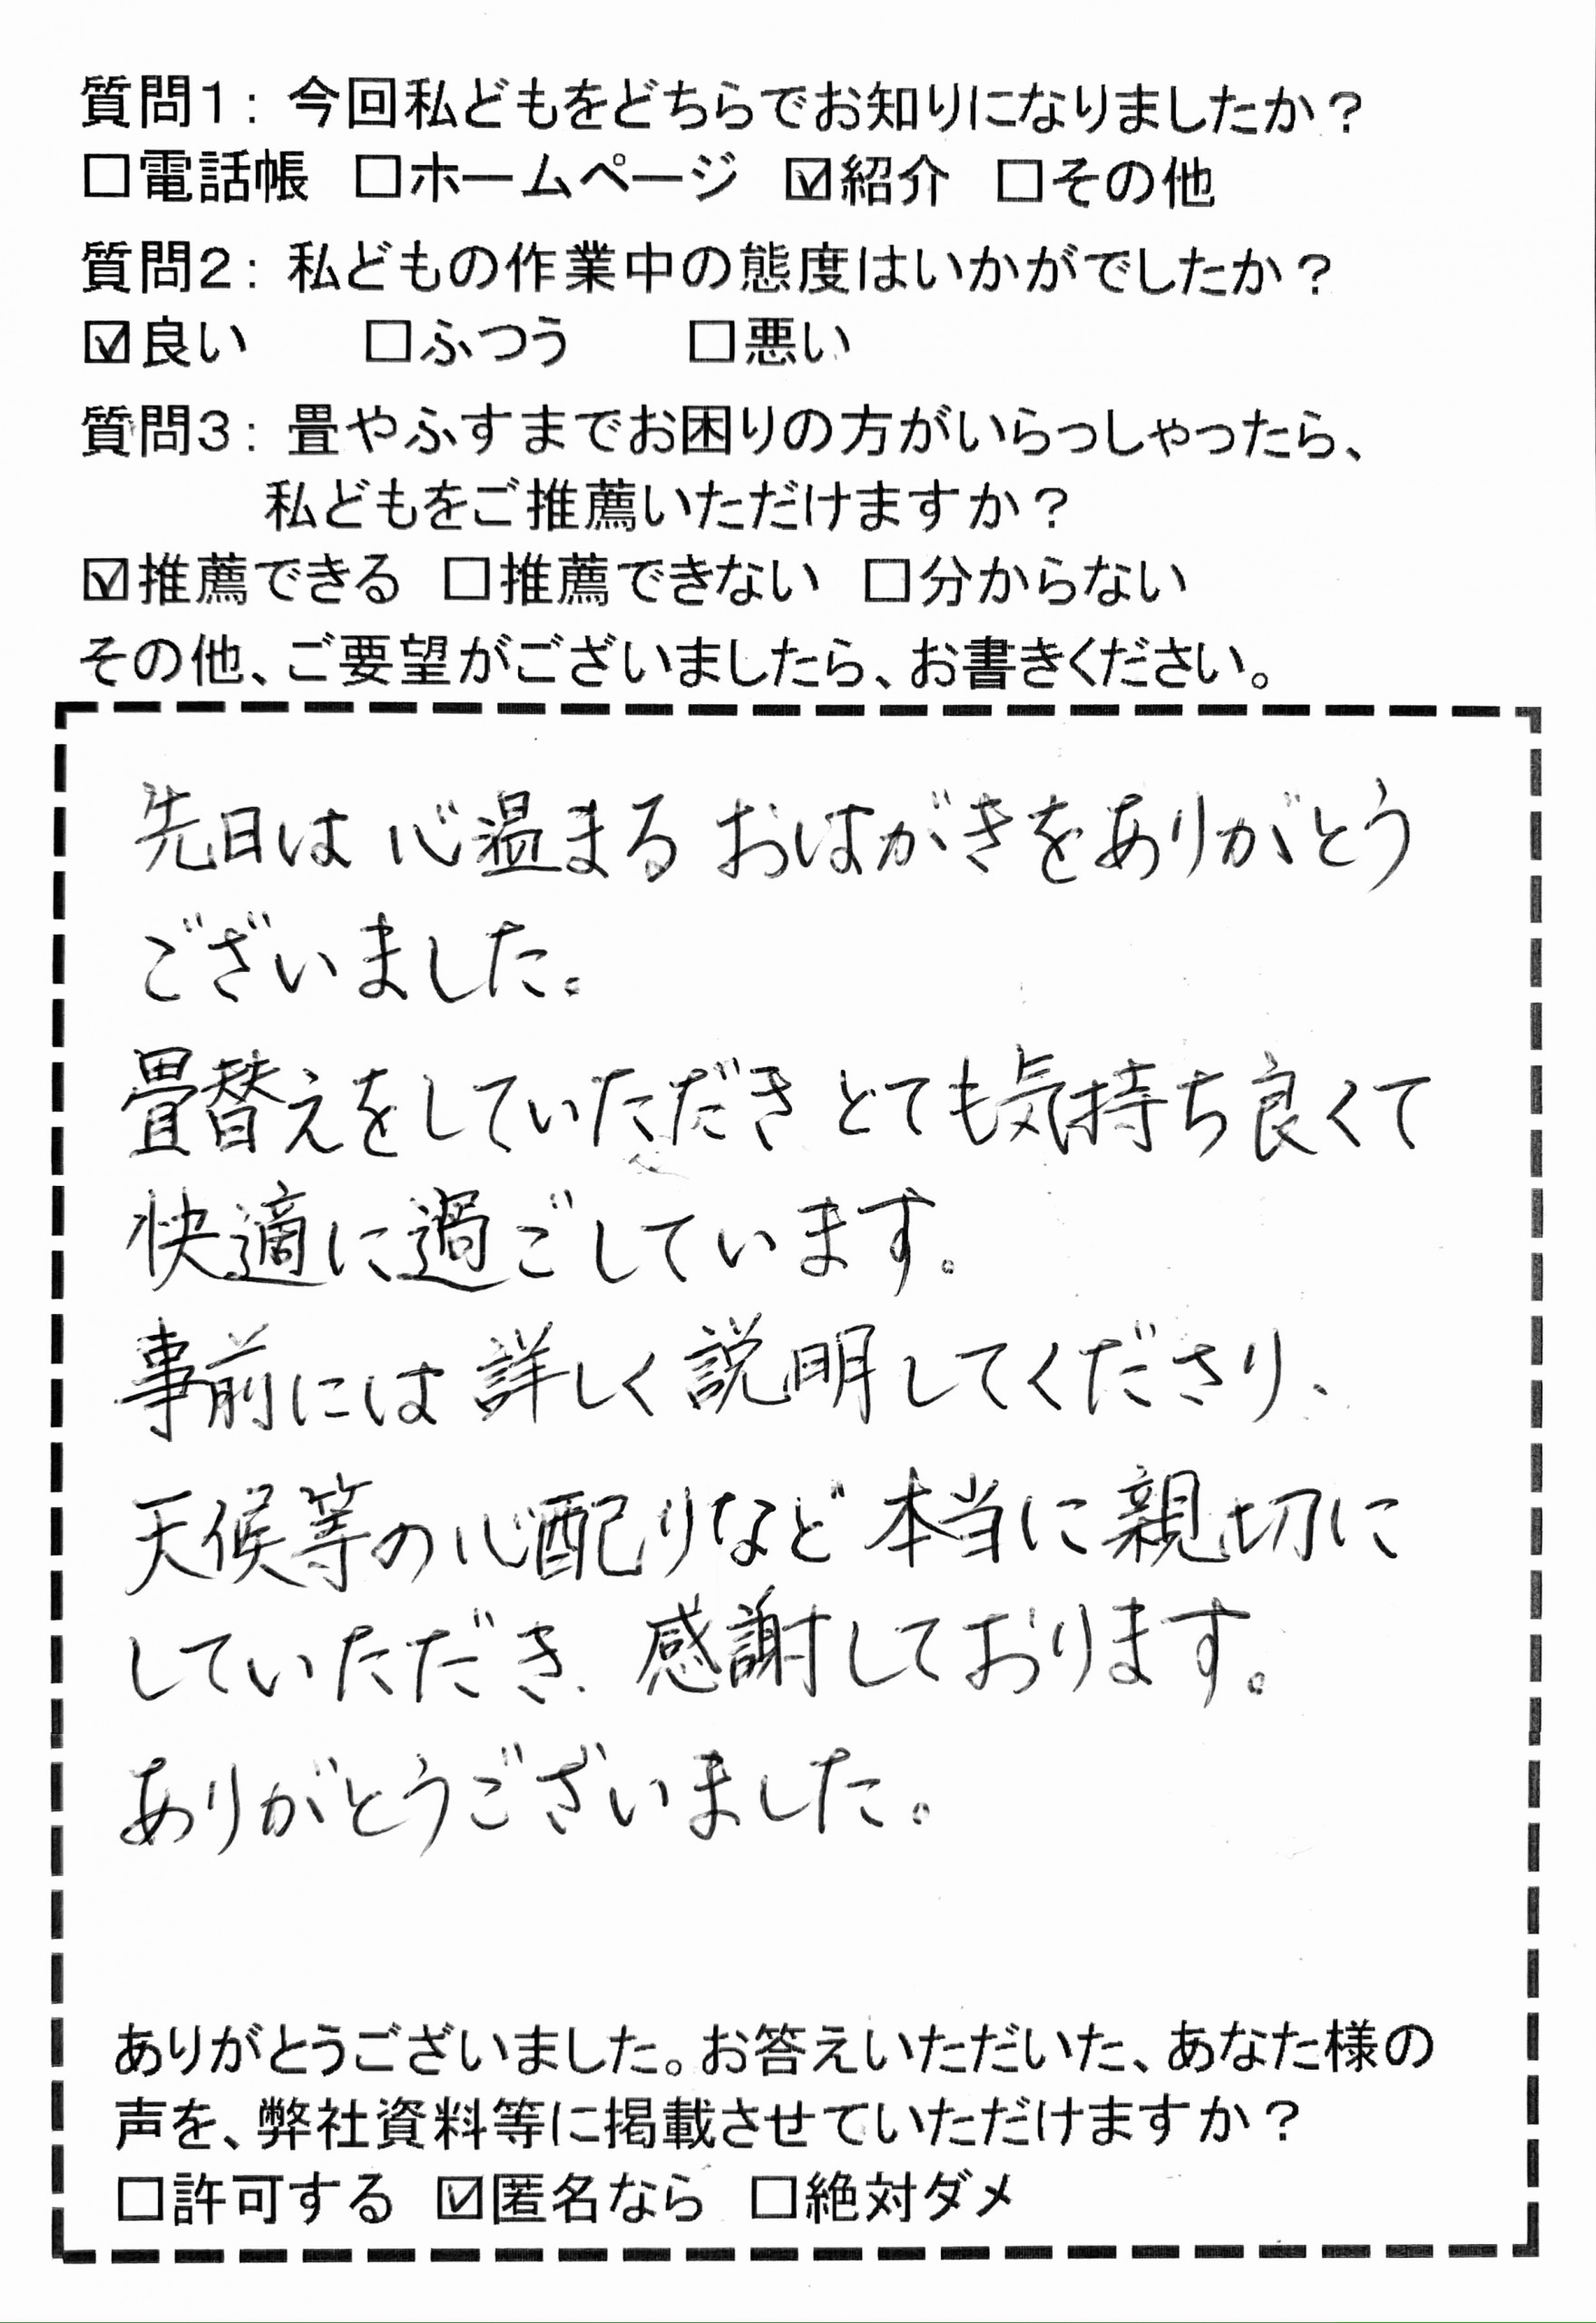 質問1：今回私どもをどちらでお知りになりましたか？
□電話帳 □ホームページ ☑紹介 □その他
質問2：私どもの作業中の態度はいかがでしたか？
☑良い □ふつう □悪い
質問3：畳やふすまでお困りの方がいらっしゃったら、
私どもをご推薦いただけますか？
☑推薦できる □推薦できない □分からない
その他、ご要望がございましたら、お書きください。
先日は 心温まる おはがきをありがとう
ございました。
畳替えをしていただき とても気持ち良くて
快適に過ごしています。
事前には 詳しく 説明してくださり、
天候等の心配りなど 本当に親切に
していただき、感謝しております。
ありがとうございました。
ありがとうございました。お答えいただいた、あなた様の
声を、弊社資料等に掲載させていただけますか？
□許可する ☑匿名なら □絶対ダメ